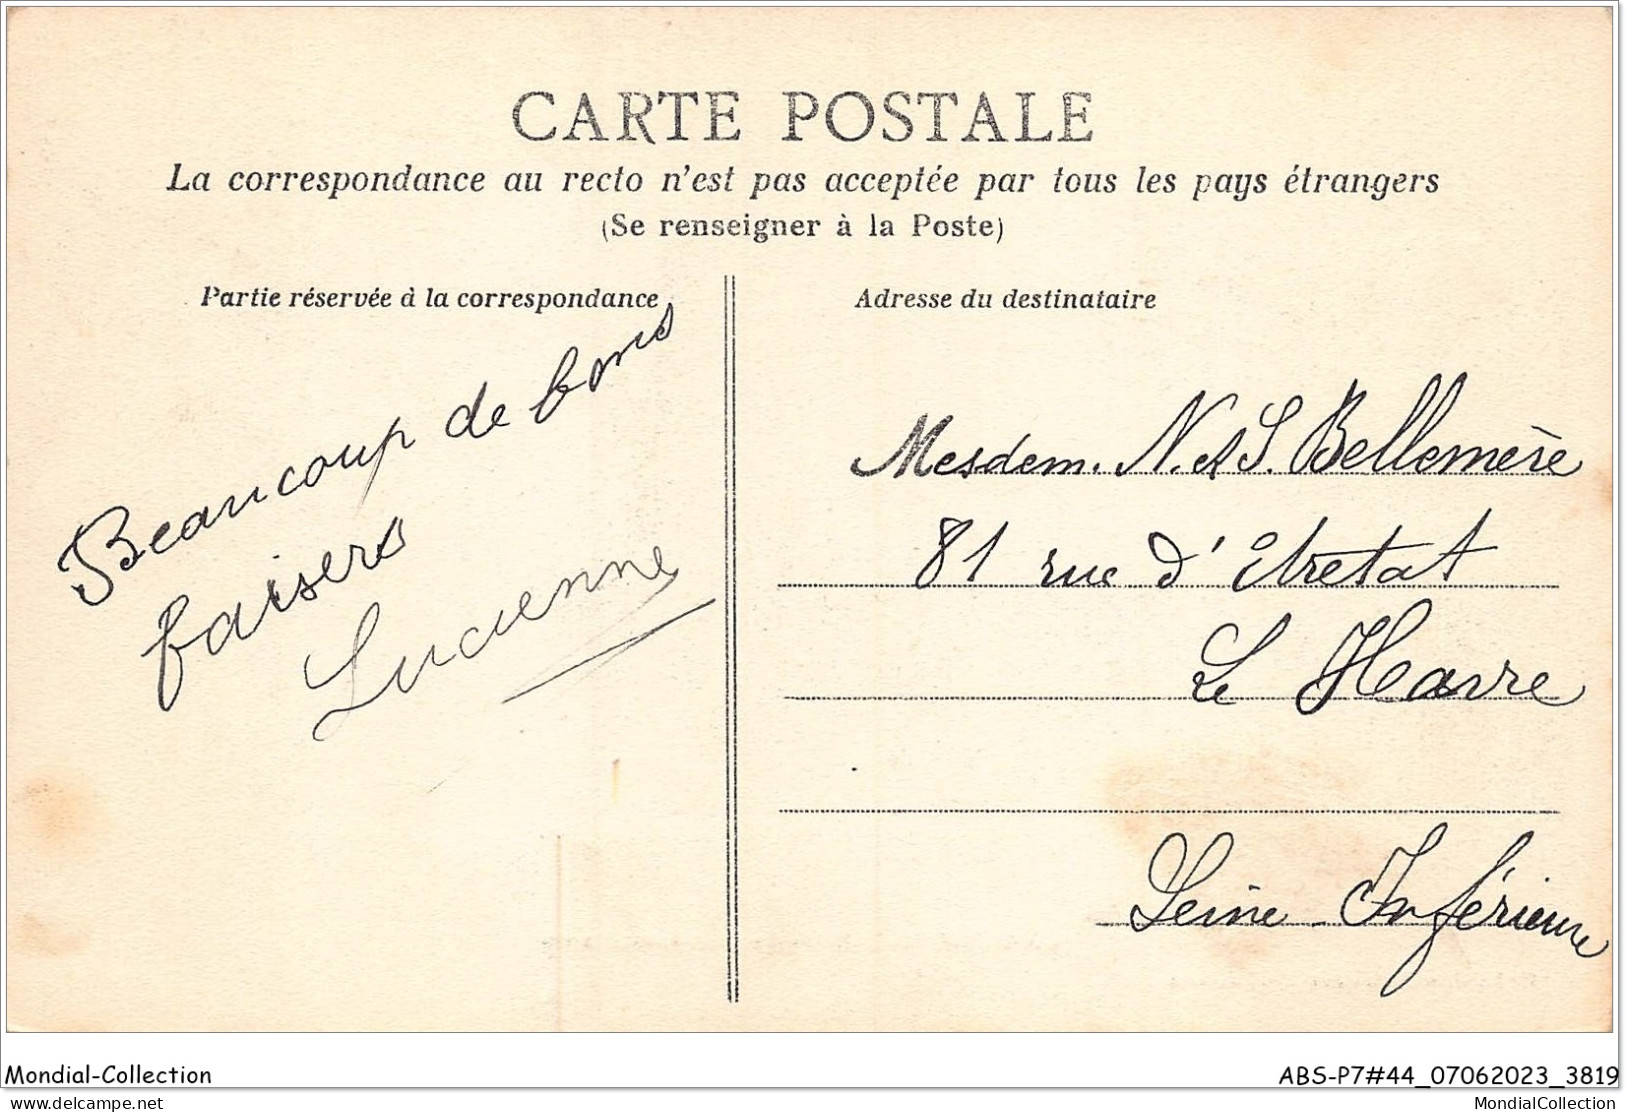 CARTE POSTALE
La correspondance au recto n'est pas acceptée par tous les pays étrangers
(Se renseigner à la Poste)
Partie réservée à la correspondance
Beaucoup de bons
baisers
Lucienne
Adresse du destinataire
Mesdem. N. et S. Bellemère
81 rue d'Etretat
Le Havre
Seine-Inférieure
Mondial-Collection
ABS-P7#44_07062023_3819
www.delcampe.net
MondialCollection